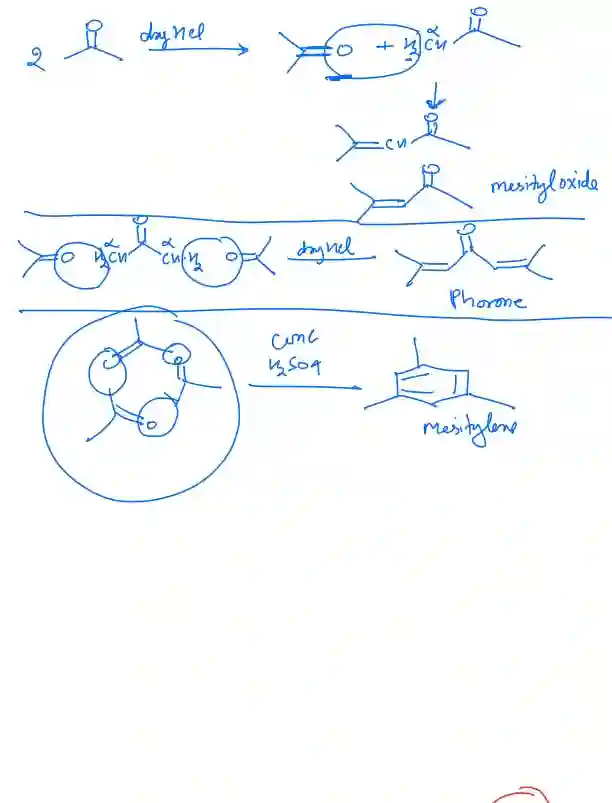 2 O dry Hcl O + H2 CH α O
CH O
O mesityl oxide
O H2 CH α O α CH H2 O dry Hcl O
Phorone
O O O Conc H2SO4
mesitylene